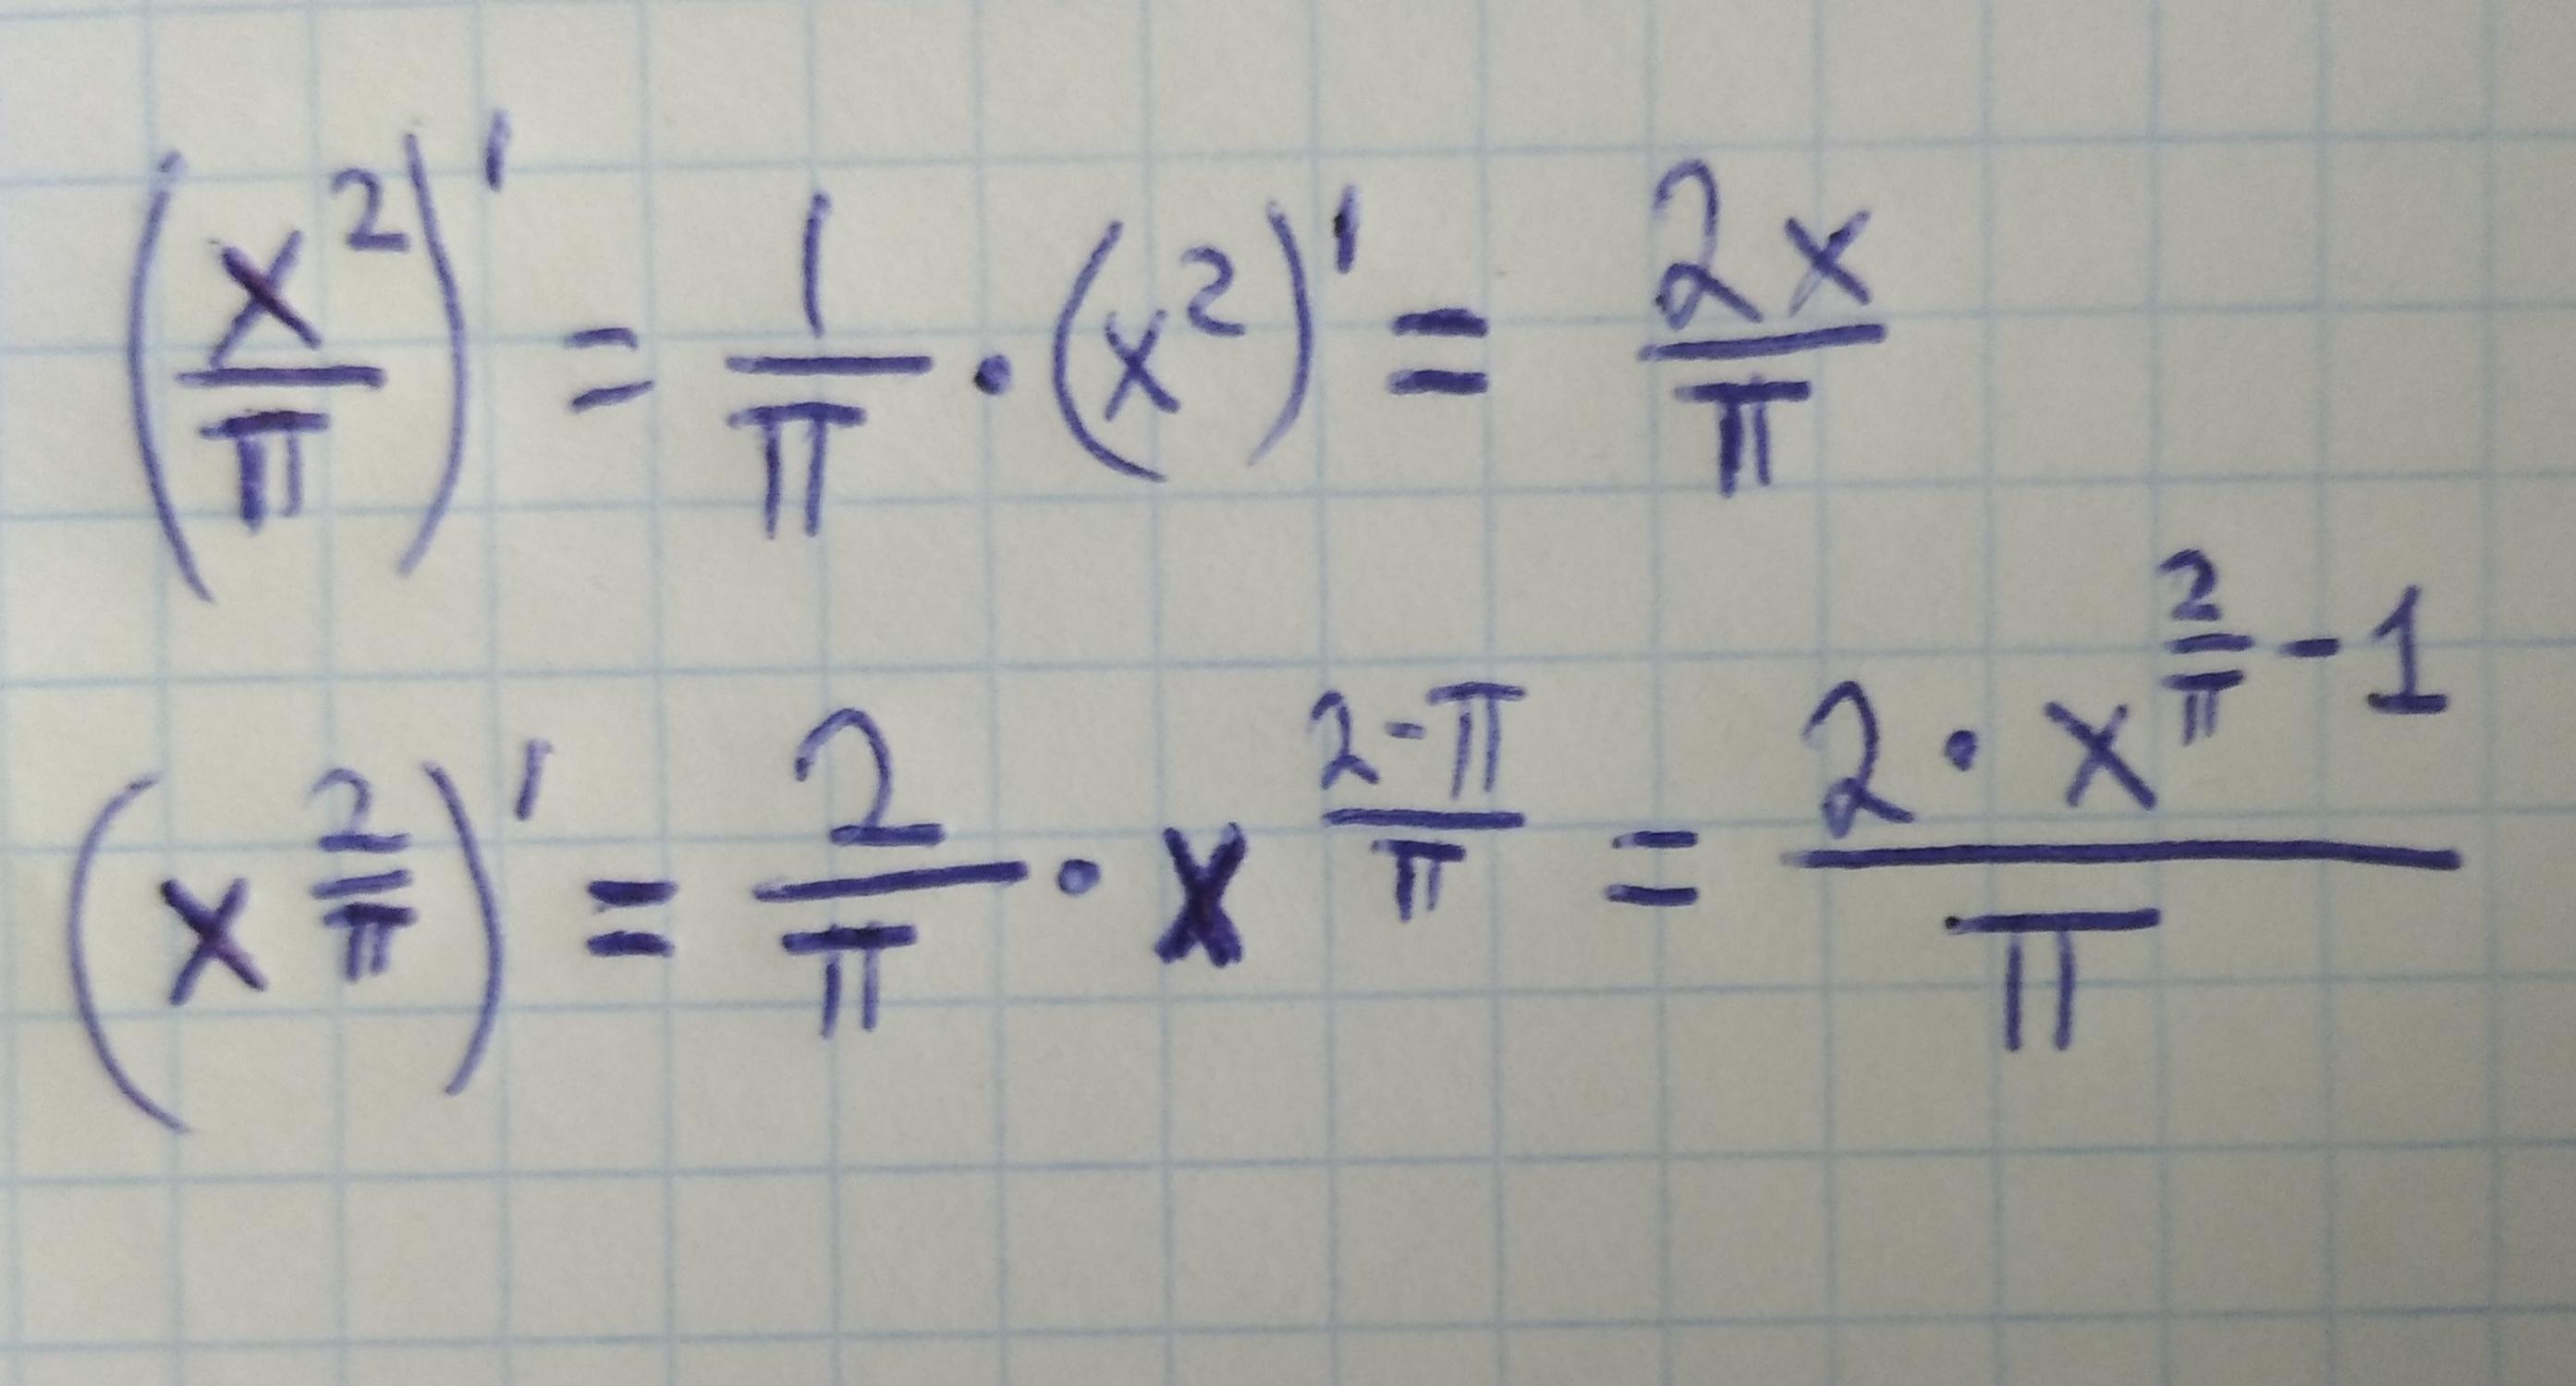 (x²/π)' = 1/π · (x²)' = 2x/π
(x^(2/π))' = 2/π · x^((2-π)/π) = (2 · x^(2/π - 1))/π